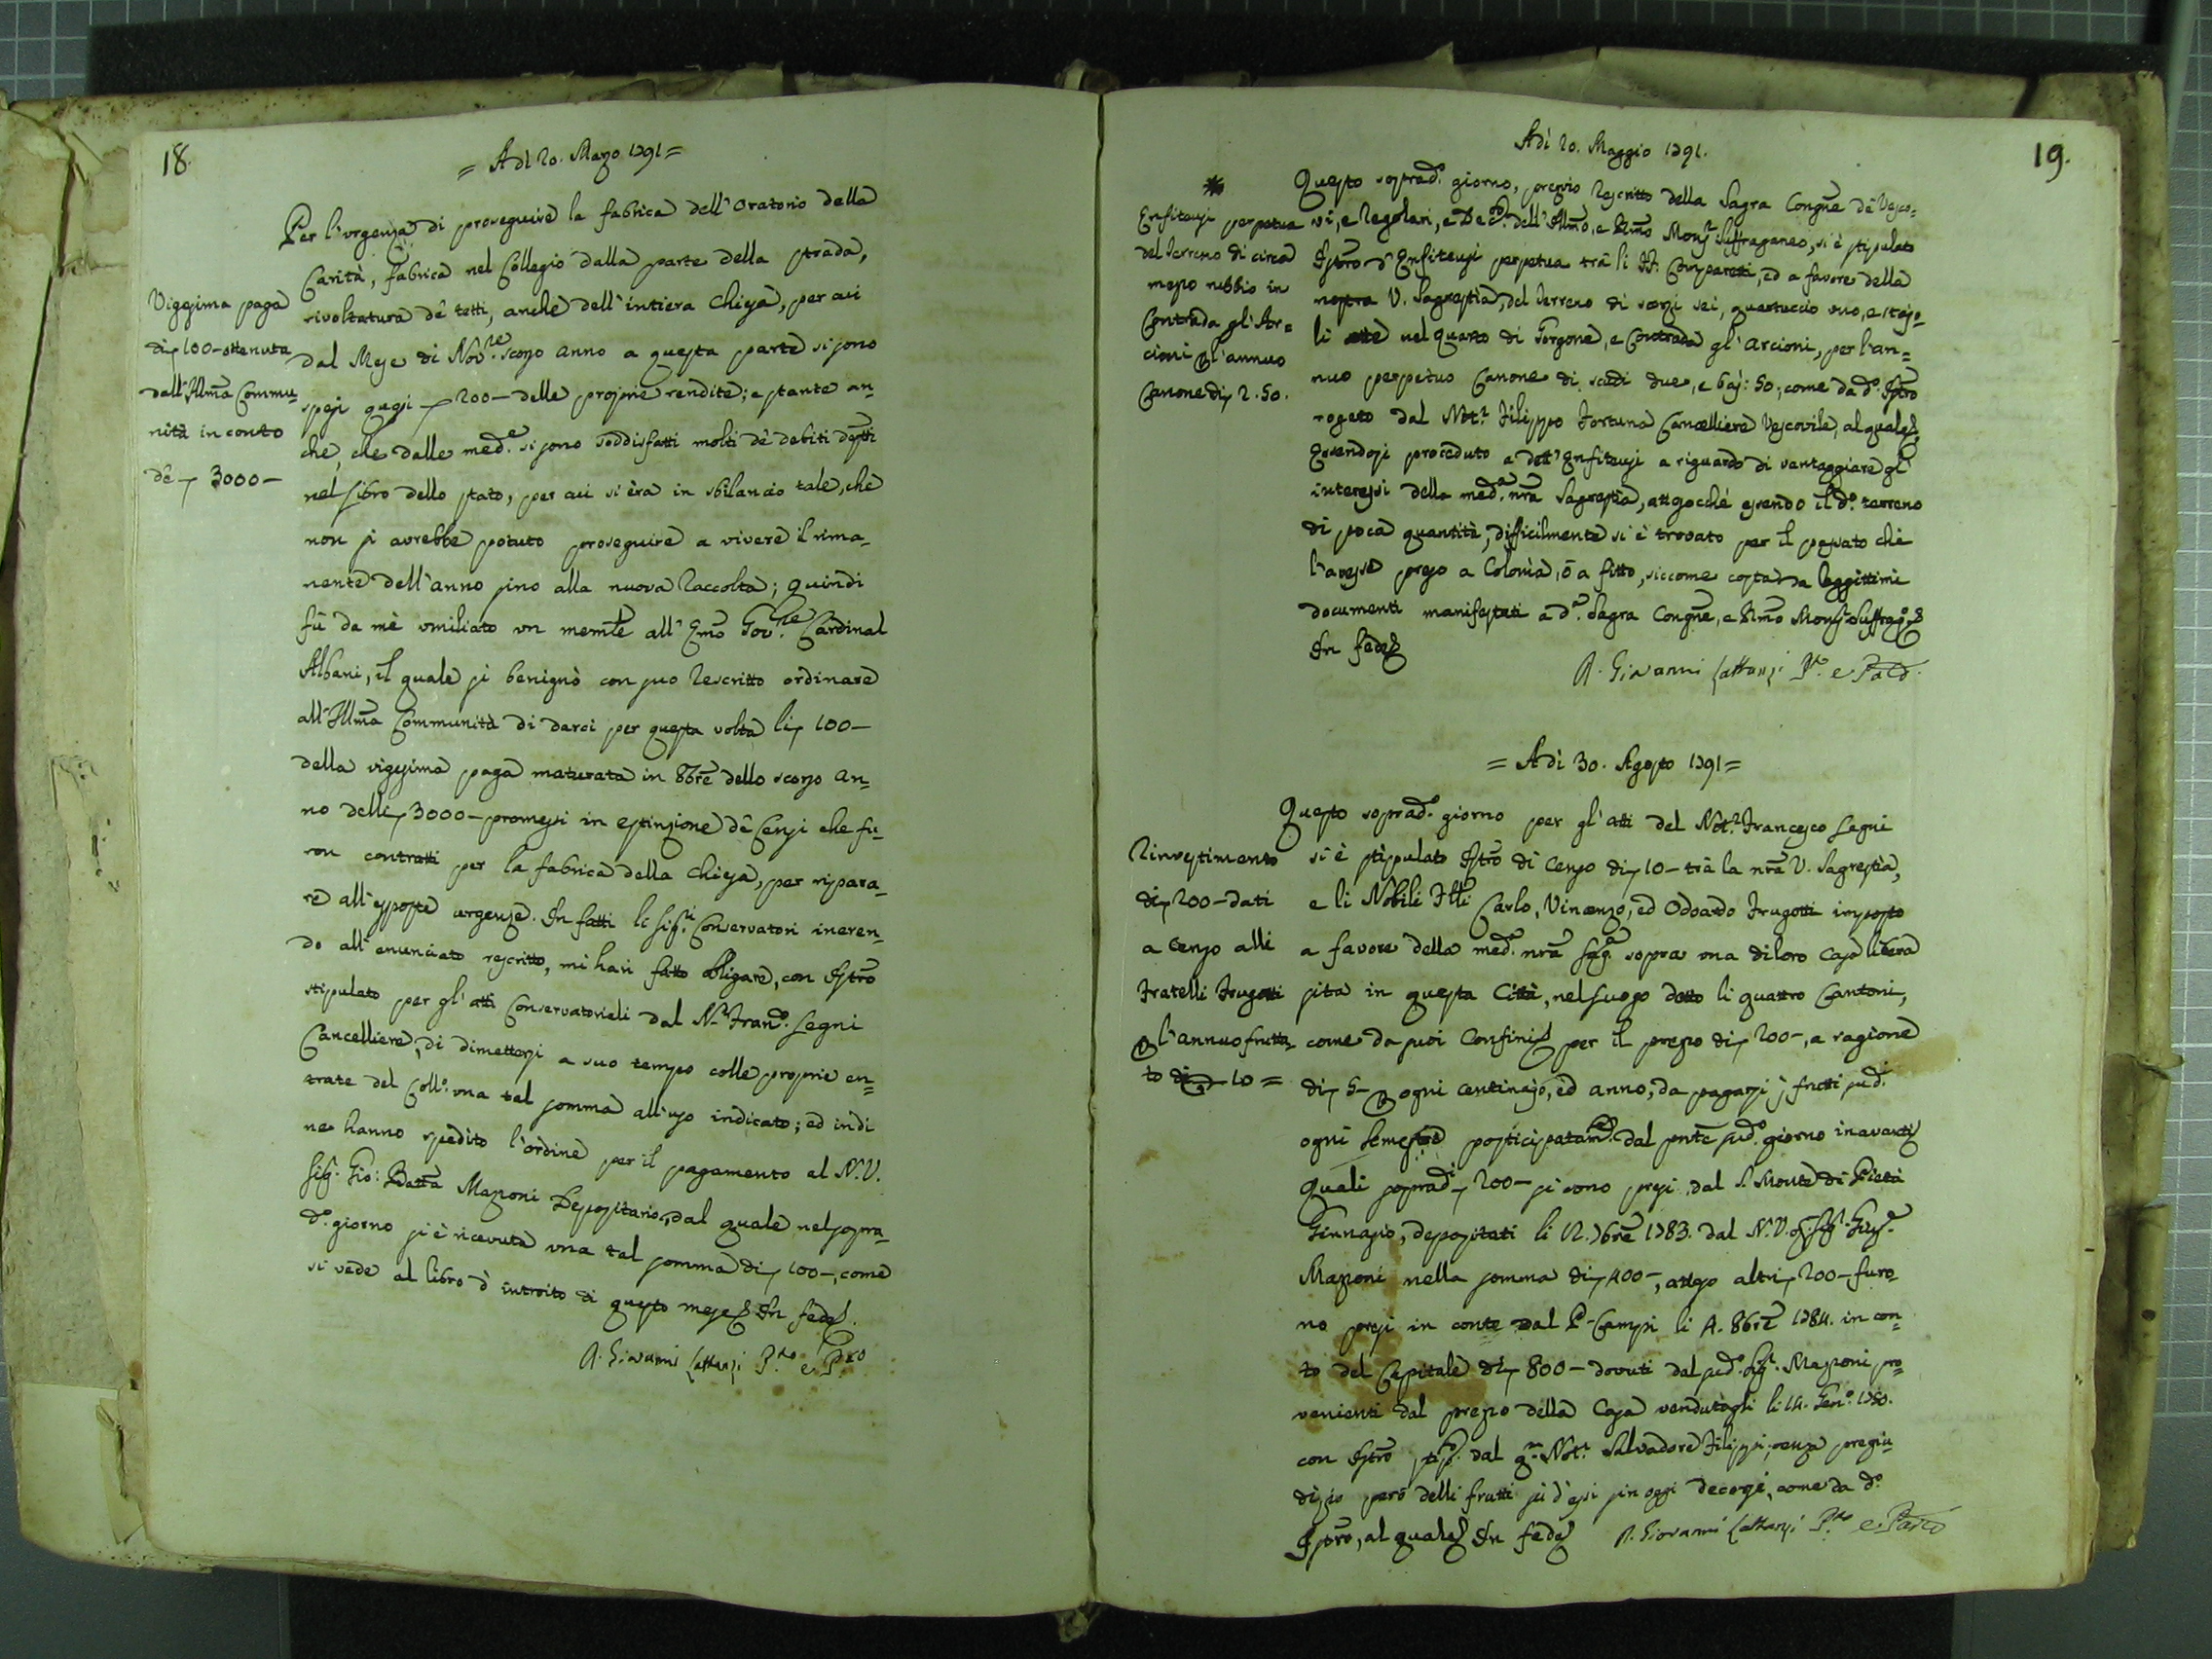 18.
= Adì 20. Marzo 1791 =
Per l'urgenza di proseguire la fabrica dell'Oratorio della
Carità, fabrica nel Collegio dalla parte della strada,
rivoltatura dè tetti, anche dell'intiera Chiesa, per cui
dal Mese di Nov.re scorso anno a questa parte si sono
spesi quasi 200 – delle proprie rendite; e stante an-
che, che dalle med.e si sono soddisfatti molti dè debiti
nel Libro dello stato, per cui si èra in sbilancio tale, che
non si avrebbe potuto proseguire a vivere il rima-
nente dell'anno sino alla nuova Raccolta; quindi
fù da mè umiliato un memle all'Emo Gov.re Cardinal
Albani, il quale si benignò con suo Rescritto ordinare
all'Illma Communità di darci per questa volta li 100 –
della vigesima paga maturata in 8bre dello scorso an-
no delli 3000 – promessi in estinzione dè Censi che fu-
ron contratti per la fabrica della Chiesa, per ripara-
re all'esposte urgenze. In fatti li Sig.ri Conservatori ineren-
do all'enunciato rescritto, mi han fatto obligare, con Istro
stipulato per gl'atti Conservatorieli dal N.r Fran.o Segni
Cancelliere, di dimettersi a suo tempo colle proprie en-
trate del Coll.o una tal somma all'uso indicato; ed indi
ne hanno spedito l'ordine per il pagamento al N.V.
Sig. Gio: Batta Mazzoni Depositario, dal quale nel sopra-
d.o giorno si è ricevuta una tal somma di 100 –, come
si vede al libro d'introito di questo mese In fede.
Giovanni Cattanzi
Vigesima paga
di 100 – ottenuta
dall'Illma Commu-
nità in conto
dè 3000 –
19.
Adì 20. Maggio 1791.
Questo soprad.o giorno, previo Rescritto della Sagra Congne dè Vesco-
vi, e Regolari, e Dec. dell'Illmo, e Rmo Mons.r Suffraganeo, si è stipulato
Istro d'Enfiteusi perpetua trà li Comparetti, ed a favore della
nostra V. Sagrestia, del terreno di scorzi sei, quartuccio uno, e stajo-
li otto nel Quarto di Gorgone, e Contrada gl'Arcioni, per l'an-
nuo perpetuo Canone di scudi due, e baj: 50:, come da d.o Istro
rogato dal Not.r Filippo Fortuna Cancelliere Vescovile, al quale
Essendosi proceduto a dett'Enfiteusi a riguardo di vantaggiare gl'
interessi della med.a nra Sagrestia, attesocchè essendo il d.o terreno
di poca quantità, difficilmente si è trovato per il passato chi
l'avesse preso a Colonia, ò a fitto, siccome costa da leggittimi
documenti manifestati a d.a Sagra Congne, e Rmo Mons.r Suffrag.o
In fede
Giovanni Cattanzi
Enfiteusi perpetua
del terreno di circa
mezzo rubbio in
Contrada gl'Ar-
cioni l'annuo
Canone di 2.50.
= Adì 30. Agosto 1791 =
Questo soprad.o giorno per gl'atti del Not.r Francesco Segni
si è stipulato Istro di Censo di 10 – trà la nra V. Sagrestia,
e li Nobili Carlo, Vincenzo, ed Odoardo Frugotti imposto
a favore della med.a nra Sag.a sopra una di loro Casa libera
sita in questa Città, nel Luogo detto li quattro Cantoni,
come da suoi Confini per il prezzo di 200 –, a ragione
di 5 – ogni centinajo, ed anno, da pagarsi i frutti sud.i
ogni Semestre posticipatam.e dal pnte sud.o giorno in avanti
Quali soprad.i 200 – si sono presi dal S. Monte di Pietà
Ginnasio, depositati li 12. 7bre 1783. dal N.V. Sig. Gius.e
Mazzoni nella somma di 400 –, atteso altri 200 – furo-
no presi in conto dal P. Campsi li 4. 8bre 1784. in con-
to del Capitale di 800 – dovuti dal sud.o Sig.r Mazzoni pro-
venienti dal prezzo della Casa vendutagli li 14. Gen.o 1780.
con Istro stip. dal q.m Not.r Salvadore Filippi, senza pregiu-
dizio però delli frutti sù d'essi sin oggi decorsi, come da d.o
Istro, al quale In fede Giovanni Cattanzi
Rinvestimento
di 200 – dati
a Censo alli
Fratelli Frugotti
l'annuo frutta-
to di 10 =